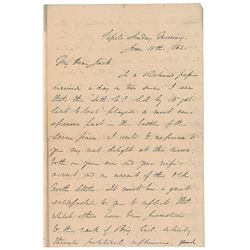 Sunday Morning
June 15th 1862
My Dear Jack.
In a Richmond paper
received a day or two since I see
that the 4th N.C. led by its gal-
lant Colonel played a most con-
spicuous part in the battle of the
Seven Pines. I write to express to
you my real delight at the news,
both on your own and your wife's
account, and on account of the Old
North State. It must be a great
satisfaction to you to reflect that
whilst others have been promoted
to the rank of Brig. Genl. entirely
through political influence, your